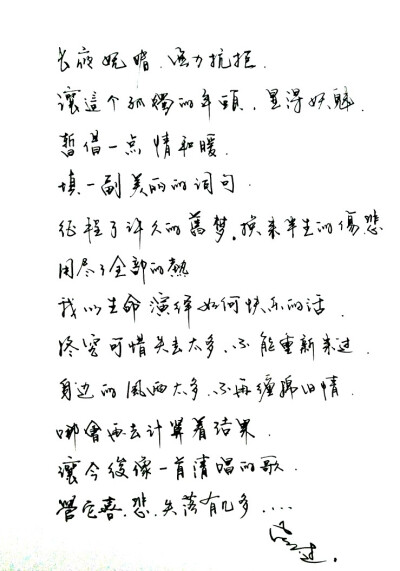 长夜婉暗．强力抗拒．
讓這个孤獨的年頭．显得妖魅．
暫借一点情和暖．
填一副美丽的词句．
征程了许久的舊梦。换来半生的傷悲
用尽了全部的熱
我以生命演绎如何快乐的活．
终究可惜失去太多、不能重新来过．
身边的風雨太多、不再纏綿旧情．
哪會再去计算着结果．
讓今後像一首清唱的歌．
管它喜．悲．失落有几多．．．．